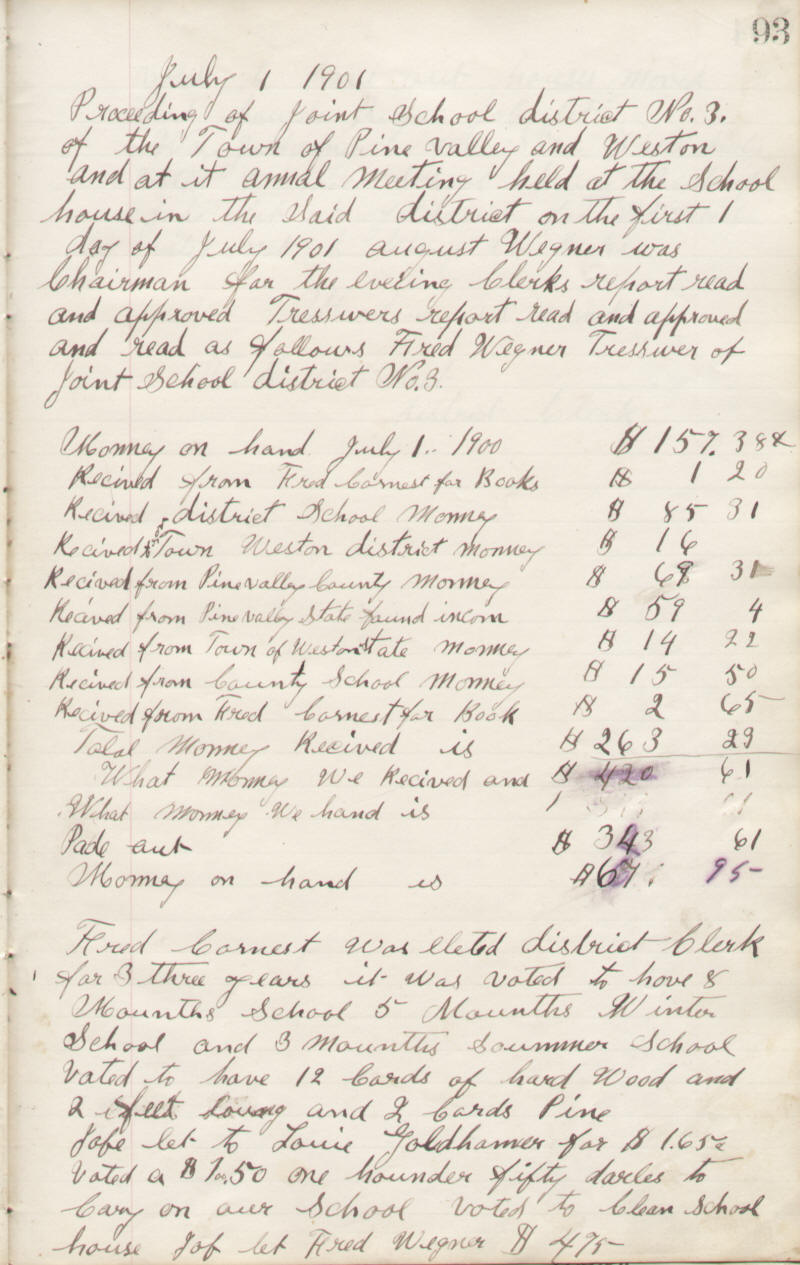 93
July 1 1901
Proceeding of Joint School district No. 3.
of the Town of Pine valley and Weston
and at it annal Meeting held at the School
house in the Said district on the first 1
day of July 1901 august Wegner was
Chairman for the evening Clerks report read
and approved Tresswers report read and approved
and read as follows Fred Wegner Tresswer of
Joint School district No. 3.
Monney on hand July 1. 1900 $ 157. 38
Recived from Fred Cornest for Books $ 1 20
Recived district School Monney $ 85 31
Recived Town Weston district monney $ 16
Recived from Pine valley County Monney $ 31
Recived from Pine valley State found incom $ 59 4
Recived from Town of Weston state Monney $ 14 22
Recived from County School Monney $ 15 50
Recived from Fred Cornest for Book $ 2 65
Total Monney Recived is $ 263 23
What Monney We Recived and $ 420 61
What Monney We hand is
Pade aut $ 343 61
Monney on hand is $ 67. 95
Fred Cornest was eleted district Clerk
for 3 three years it was voted to hove 8
Mounths School 5 Mounths Winter
School and 3 Mounths Soummer School
Voted to have 12 Cords of hard Wood and
2 feet Loung and 2 Cords Pine
Jobe let to Louie Goldhamer for $ 1.65
Voted a $ 50 one hounder fifty darles to
Cary on our School voted to Clean School
house Job let Fred Wegner $ 475